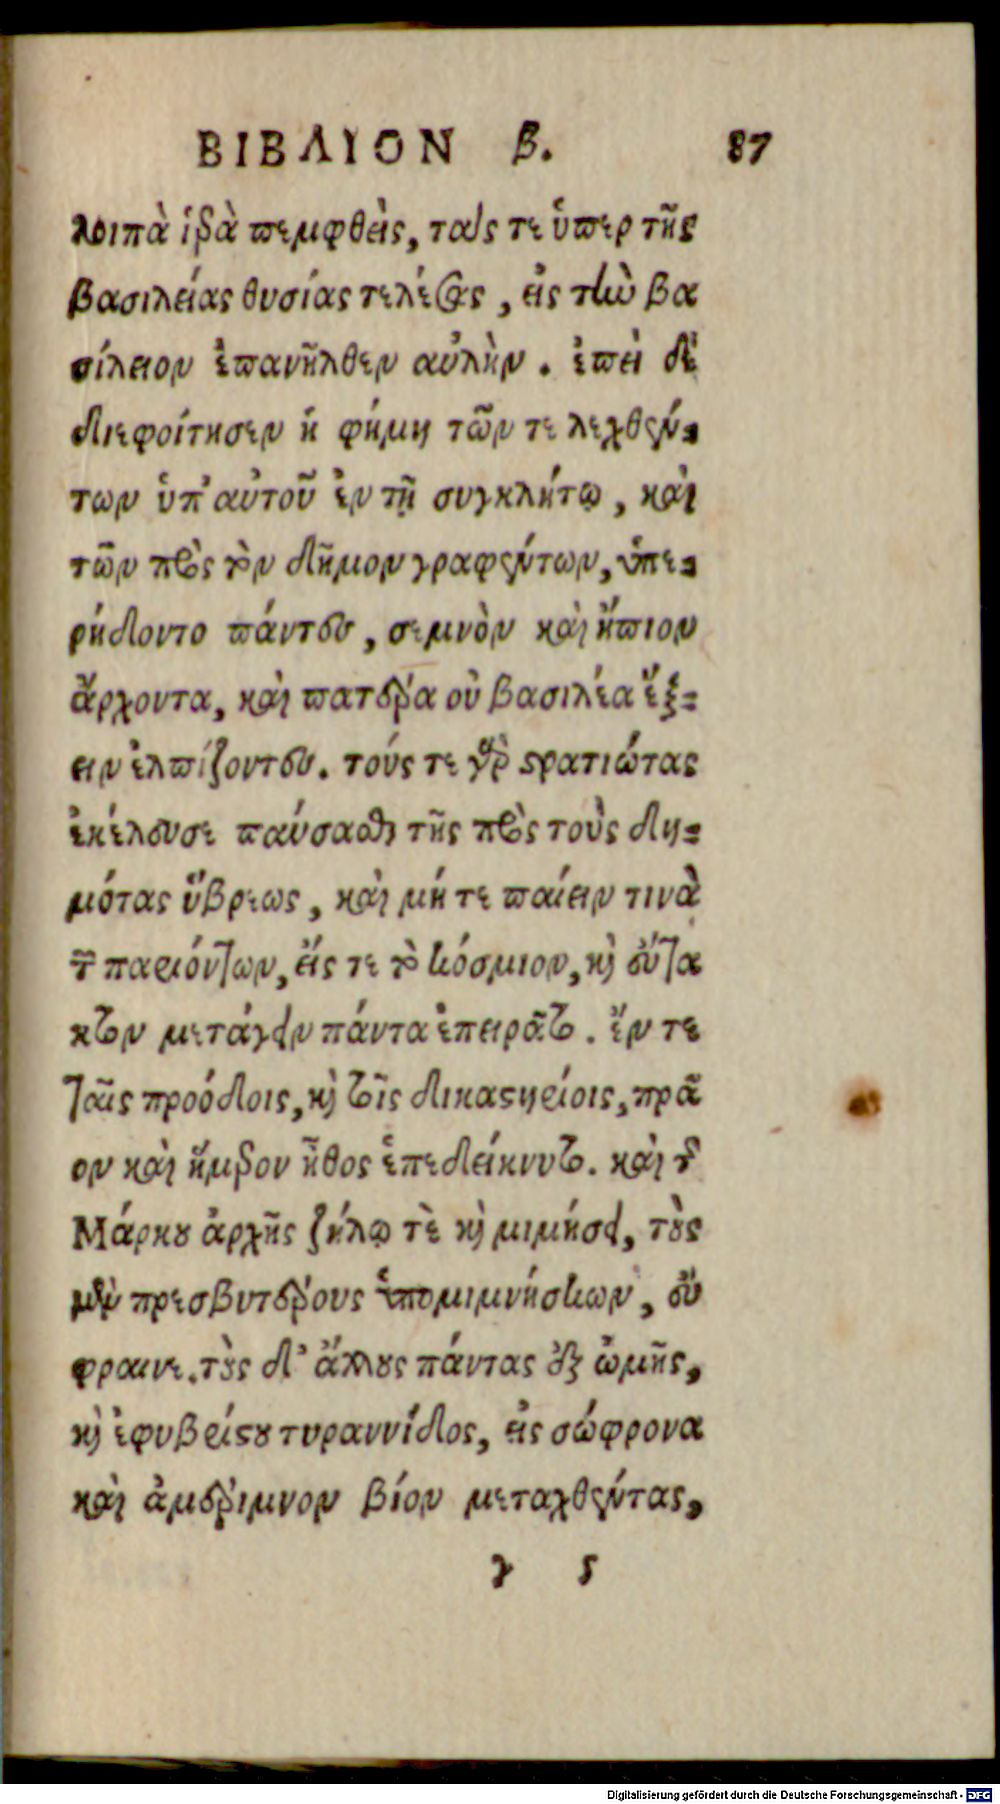 ΒΙΒΛΙΟΝ β. 87
λοιπὰ ἱερὰ πεμφθεὶς, ταῖς τε ὑπερ τῆς
βασιλείας θυσίας τελέσας, εἰς τὴν βα
σίλειον ἐπανῆλθεν αὐλὴν. ἐπεὶ δὲ
διεφοίτησεν ἡ φήμη τῶν τε λεχθέν-
των ὑπ' αὐτοῦ ἐν τῇ συγκλήτῳ, καὶ
τῶν πρὸς τὸν δῆμον γραφέντων, ὑπε-
ρήδοντο πάντες, σεμνὸν καὶ ἤπιον
ἄρχοντα, καὶ πατέρα οὐ βασιλέα ἕξ-
ειν ἐλπίζοντες. τούς τε γὰρ στρατιώτας
ἐκέλευσε παύσασθαι τῆς πρὸς τοὺς δη-
μότας ὕβρεως, καὶ μήτε παίειν τινὰ
τῶν παριόντων, εἴς τε τὸ κόσμιον, καὶ εὔτα
κτον μετάγειν πάντα ἐπειρᾶτο. ἔν τε
ταῖς προόδοις, καὶ τοῖς δικαστηρίοις, πρᾶ
ον καὶ ἥμερον ἦθος ἐπεδείκνυτο. καὶ τῆς
Μάρκου ἀρχῆς ζήλῳ τὲ καὶ μιμήσει, τοὺς
μὲν πρεσβυτέρους ὑπομιμνήσκων, εὔ
φραινε. τοὺς δ' ἄλλους πάντας ἐξ ὠμῆς,
καὶ ἐφυβρίστου τυραννίδος, εἰς σώφρονα
καὶ ἀμέριμνον βίον μεταχθέντας,
γ ς
Digitalisierung gefördert durch die Deutsche Forschungsgemeinschaft - DFG